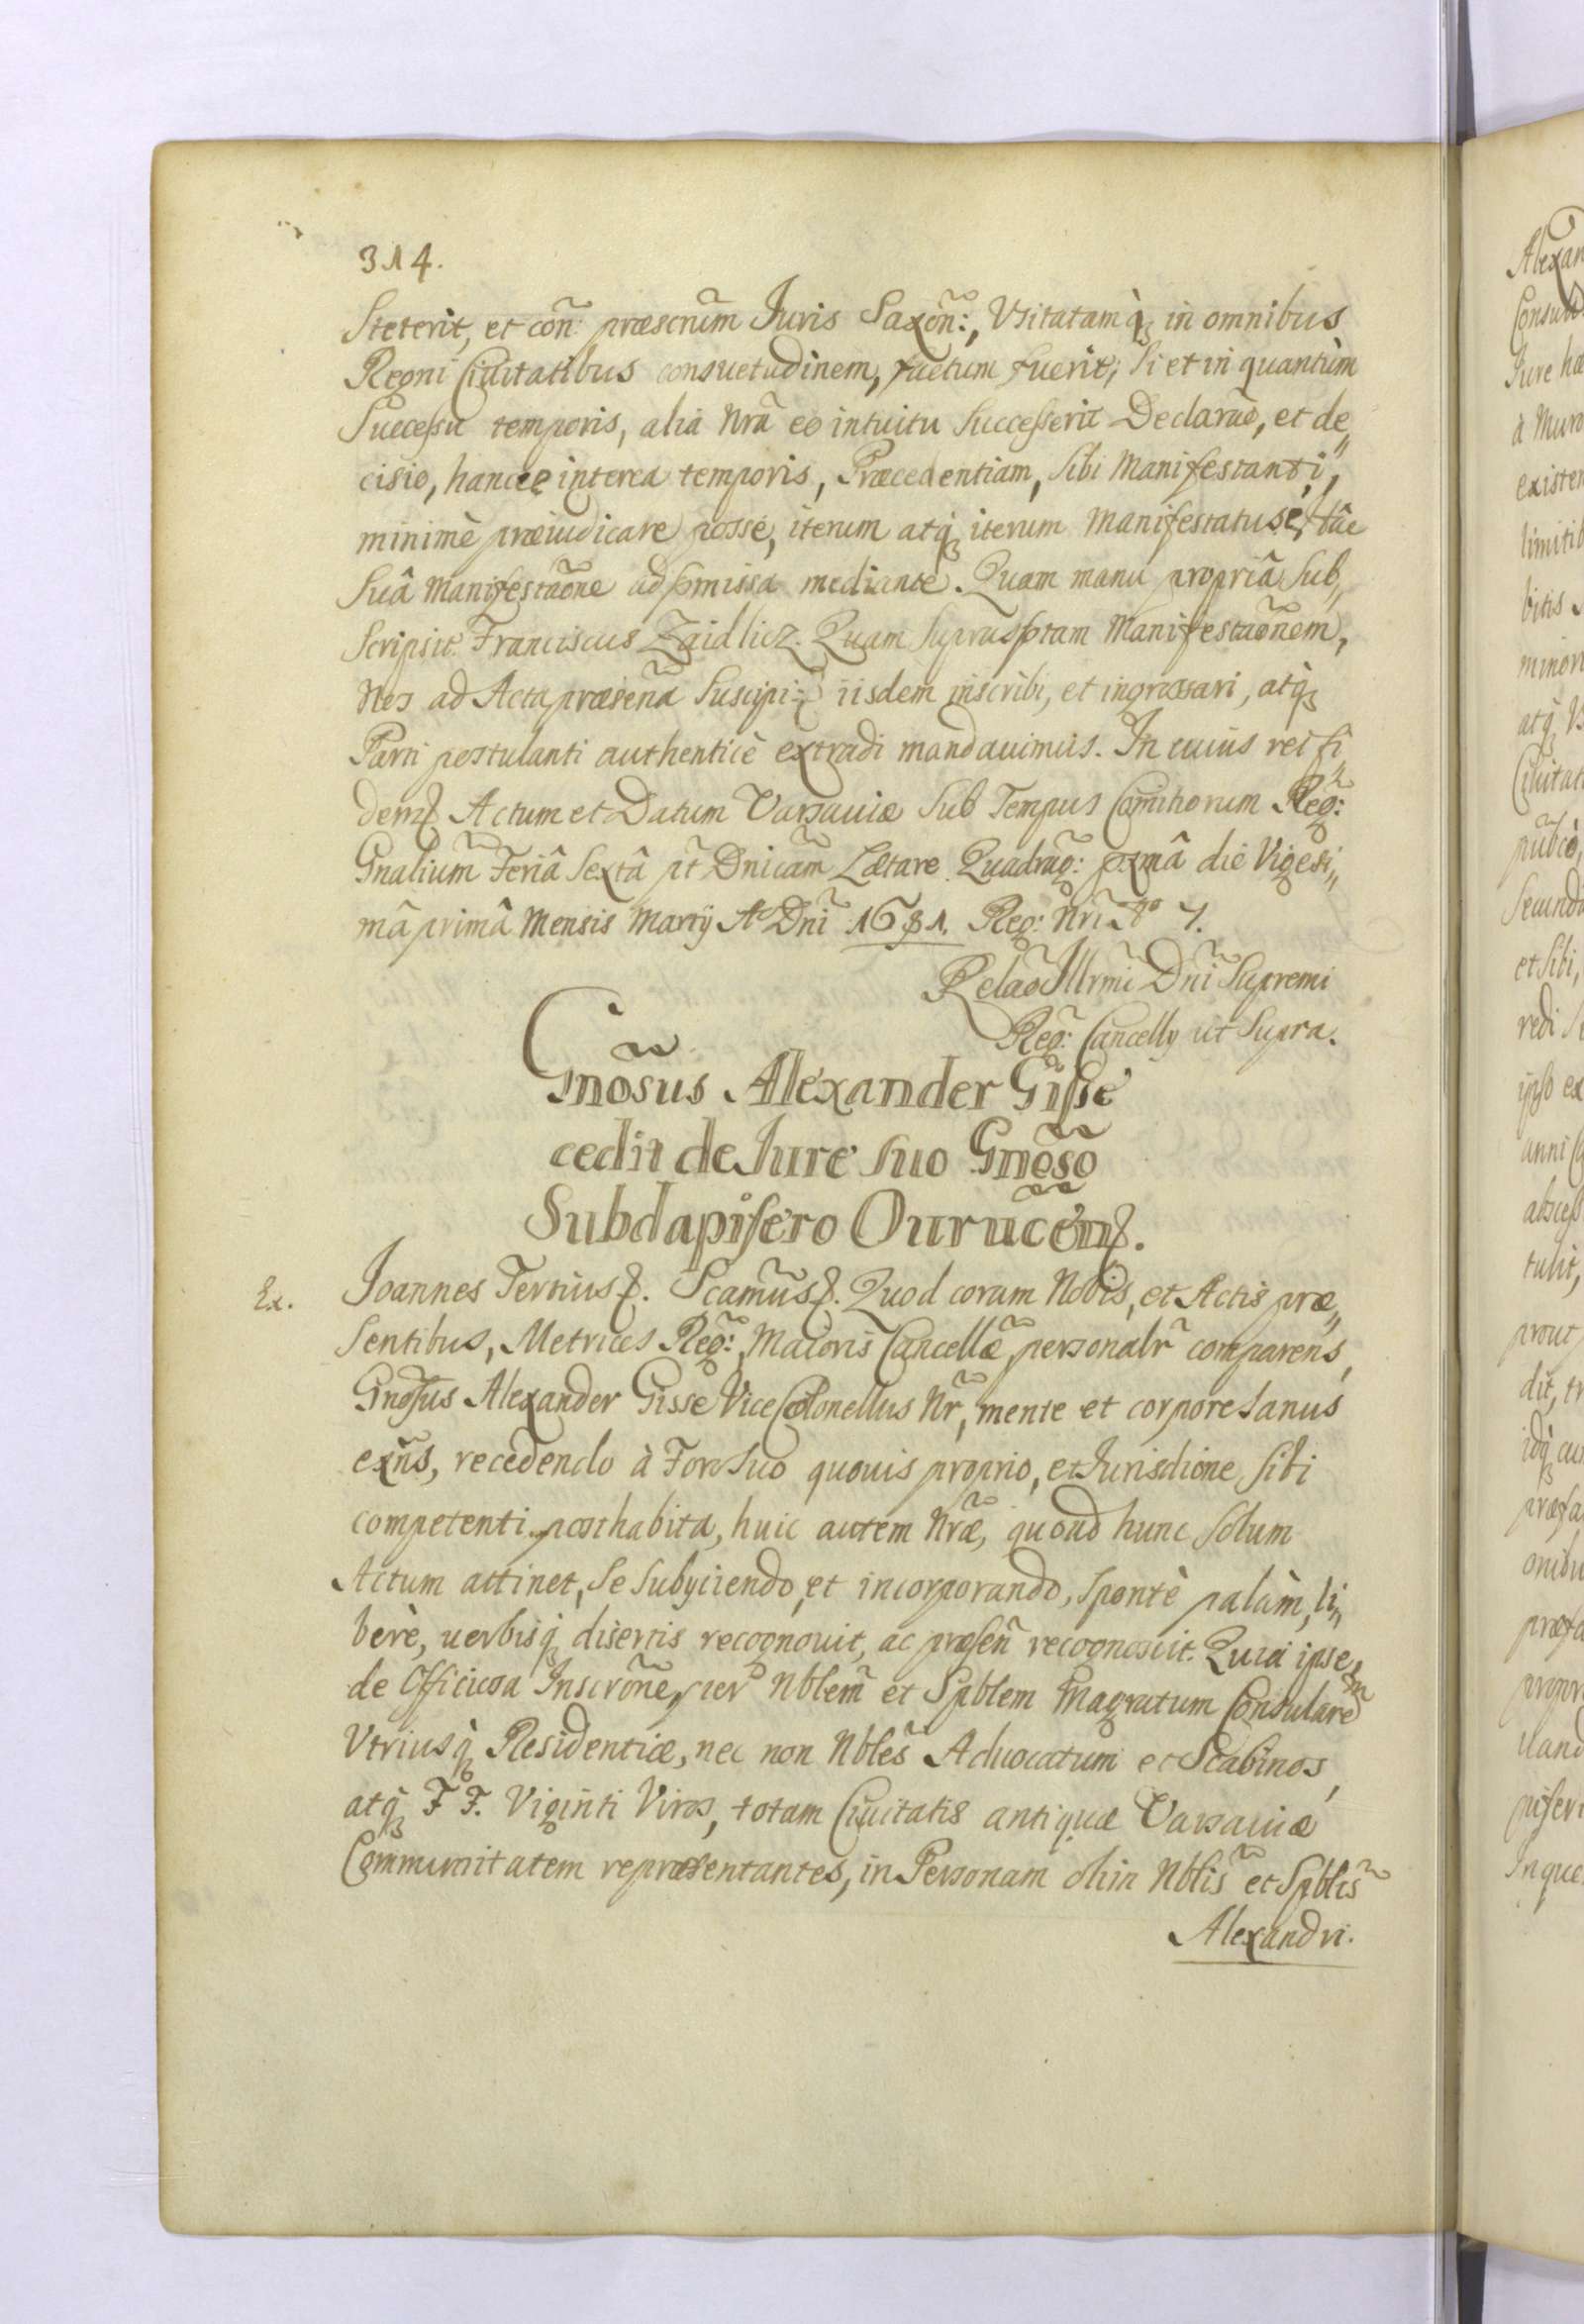 314.
Steterit, et coñ: præscrũm Juris Saxoñ:, Vsitatamq́ꝫ in omnibus
Regni Ciuitatibus consuetudinem, factum fuerit; Si et in quantùm
Successu temporis, alia Nrã eo intuitu Successerit Declaraõ, et de„
cisio, hancce interea temporis, Præcedentiam, Sibi Manifestanti„
minimè præiudicare posse, iterum atq́ꝫ iterum Manifestatus e
Suâ Manifestaõne ad præmissa mediante. Quam manu propriâ Sub„
Scripsit Franciscus Zaidlicz. Quam Suprasptam Manifestaõnem,
Nos ad Acta præsenã Suscipi, iisdem inscribi, et ingrossari, atq́ꝫ
Parti postulanti authenticè extradi mandauimus. In cuius rei fi„
dem Actum et Datum Varsauiæ Sub Tempus Comitiorum Reg̃:
Gñalium Feriâ Sextâ pt̃ Dnicam̃ Lætare Quadrag̃: pxmâ die Vigesi„
mâ primâ Mensis Martij Aº Dni 1681. Reg: Nri 7º
Relaõ Illrmi Dñi Supremi
Reg̃: Cancellÿ ut Supra.
Gnõsus Alexander Gisse
cedit de Iure suo Gnõso
Subdapifero Ourucen̄.
Ex. Joannes Tertius. Scamũs. Quod coram Nobis, et Actis præ„
Sentibus, Metrices Reg̃:, Maioris Cancellæ, personalr̃ comparens,
Gnõsus Alexander Gisse Vice Colonellus Nr̃, mente et corpore sanus
exñs, recedendo à Foro suo quouis proprio, et Jurisdione Sibi
competenti posthabita, huic autem Nræ̃, quoad hunc Solum
Actum attinet, Se Subyciendo, et incorporando, Spontè palàm, li„
berè, uerbisq́ꝫ disertis recognouit, ac præseñ recognoscit. Quia ipse,
de Officiosa Inscrõne, per Nblem̃ et Spblem Magrãtum Consularem
Vtriusq́ꝫ Residentiæ, nec non Nblẽs Aduocatum et Scabinos,
atq́ꝫ F F. Viginti Viros, totam Ciuitatis antiquæ Varsauiæ
Communitatem repræsentantes, in Personam olim Nblis̃ et Spblis̃
Alexandri.